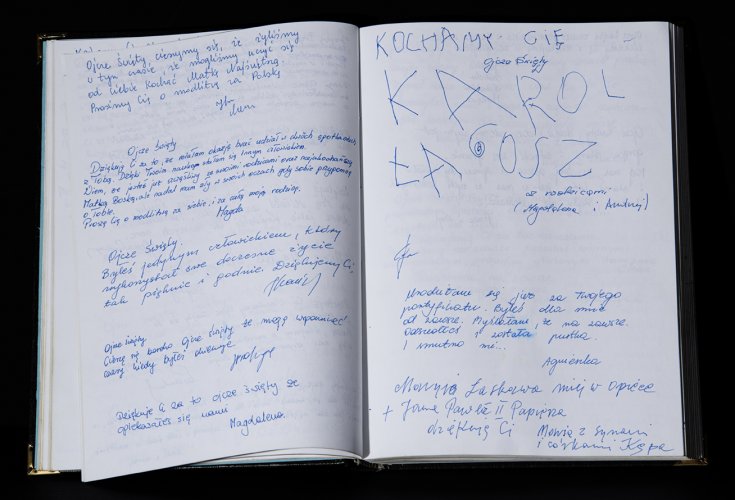 Ojcze Święty, cieszymy się, że żyliśmy
w tym czasie, że mogliśmy uczyć się
od Ciebie kochać Matkę Najświętszą.
Prosimy Cię o modlitwę za Polskę
Ojcze Święty
Dziękuję Ci za to, że miałam okazję brać udział w dwóch spotkaniach
z Tobą. Dzięki Twoim naukom stałam się innym człowiekiem.
Wiem, że jesteś już szczęśliwy ze swoimi rodzicami oraz najukochańszą
Matką Boską, ale nadal mam łzy w swoich oczach gdy sobie przypomnę
o Tobie.
Proszę Cię o modlitwę za siebie i za całą moją rodzinę.
Magda
Ojcze Święty.
Byłeś jedynym człowiekiem, który
wykorzystał swe doczesne życie
tak pięknie i godnie. Dziękujemy Ci.
Ojcze Święty
Cieszę się bardzo Ojcze Święty że mogę wspominać
czasy kiedy byłeś
Dziękuje Ci za to ojcze święty że
opiekowałeś się nami
Magdalena.
KOCHAMY CIĘ
Ojcze Święty
KAROL
ŁAGOSZ
z rodzicami
(Magdalena i Andrzej)
Urodziłam się już za Twojego
pontyfikatu. Byłeś dla mnie
od zawsze. Myślałam, że na zawsze.
Odszedłeś i została pustka.
I smutno mi...
Agnieszka
Maryjo Łaskawa miej w opiece
+ Jana Pawła II Papieża
dziękuję Ci
Maria z synami
i córkami Kępa